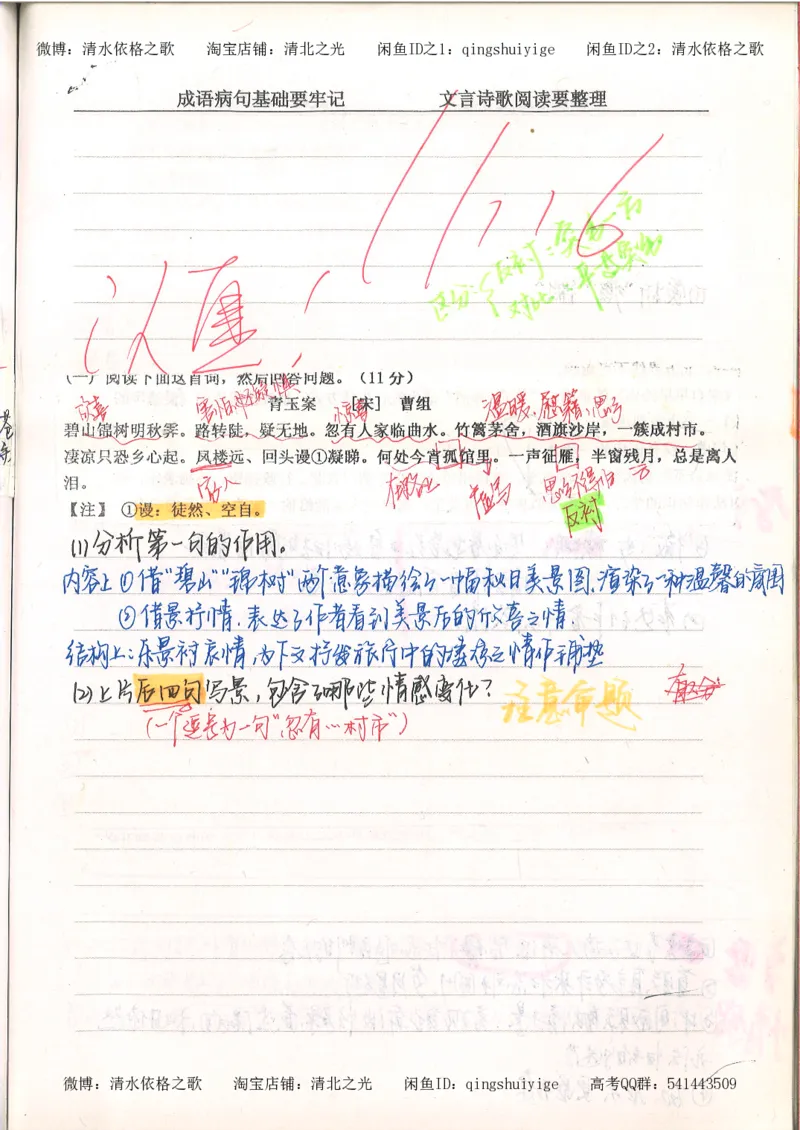 微博：清水依格之歌 淘宝店铺：清北之光 闲鱼ID之1：qingshuiyige 闲鱼ID之2：清水依格之歌
成语病句基础要牢记 文言诗歌阅读要整理
11.16
认真！
区分：反衬：突出一方
对比：平等突出
(一) 阅读下面这首词，然后回答问题。（11分）
青玉案 [宋] 曹组
欣喜
惊喜
温暖，慰藉，思乡
碧山锦树明秋霁。路转陡，疑无地。忽有人家临曲水。竹篱茅舍，酒旗沙岸，一簇成村市。
凄凉只恐乡心起。凤楼远、回头谩①凝睇。何处今宵孤馆里。一声征雁，半窗残月，总是离人
泪。
家人
反衬
【注】 ①谩：徒然、空自。
(1)分析第一句的作用。
内容上①借"碧山""锦树"两个意象描绘了一幅秋日美景图，渲染了一种温馨的氛围
②借景抒情，表达了作者看到美景后的欣喜之情.
结构上：乐景衬哀情，为下文抒发旅行中的凄凉之情作铺垫
(2)上片后四句写景，包含了哪些情感变化？
注意命题
(一个逗号为一句"忽有…村市")
微博：清水依格之歌 淘宝店铺：清北之光 闲鱼ID：qingshuiyige 高考QQ群：541443509